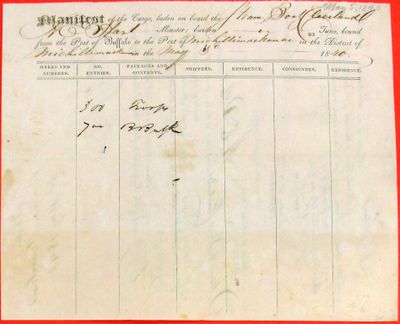 May 5, 1840
Manifest of the Cargo, laden on board the Steam Boat Cleveland
Master, Burden Tons, bound
from the Port of Buffalo to the Port of Michilimackinac in the District of
Michilimackinac in the May 1840.
MARKS AND NUMBERS. NO. ENTRIES. PACKAGES AND CONTENTS. SHIPPERS. RESIDENCE. CONSIGNEES. RESIDENCE.
300
700 B Bulk